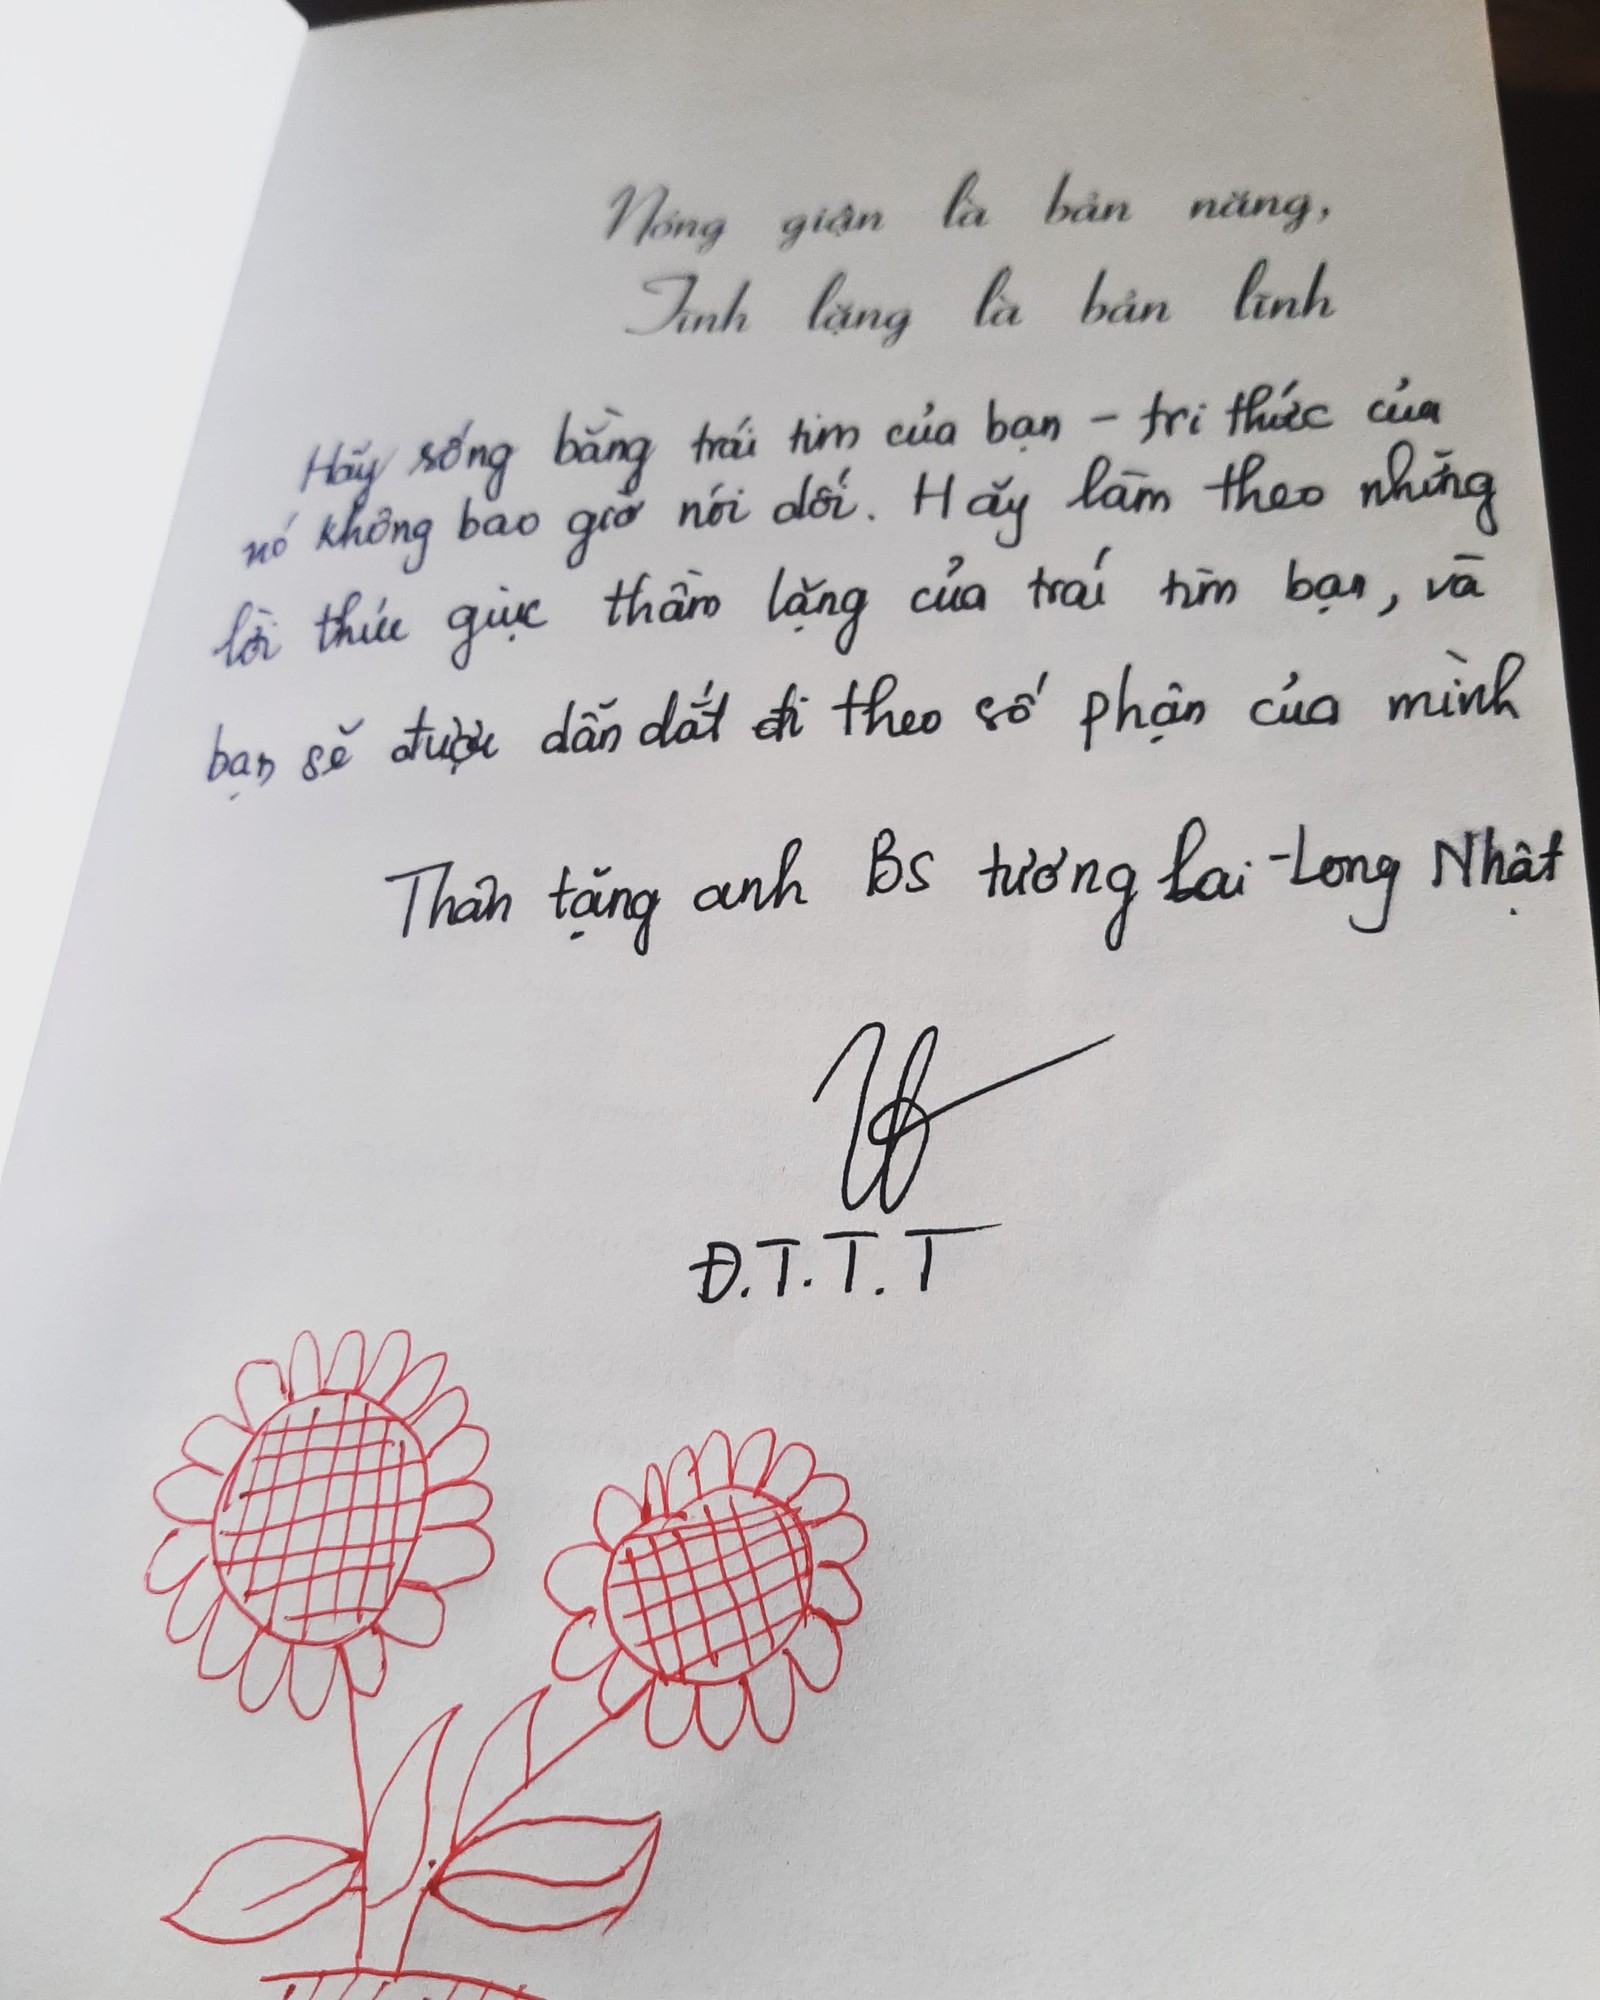 Nóng giận là bản năng,
Tĩnh lặng là bản lĩnh
Hãy sống bằng trái tim của bạn - tri thức của
nó không bao giờ nói dối. Hãy làm theo những
lời thúc giục thầm lặng của trái tim bạn, và
bạn sẽ được dẫn dắt đi theo số phận của mình
Thân tặng anh BS tương lai - Long Nhật
Đ.T.T.T